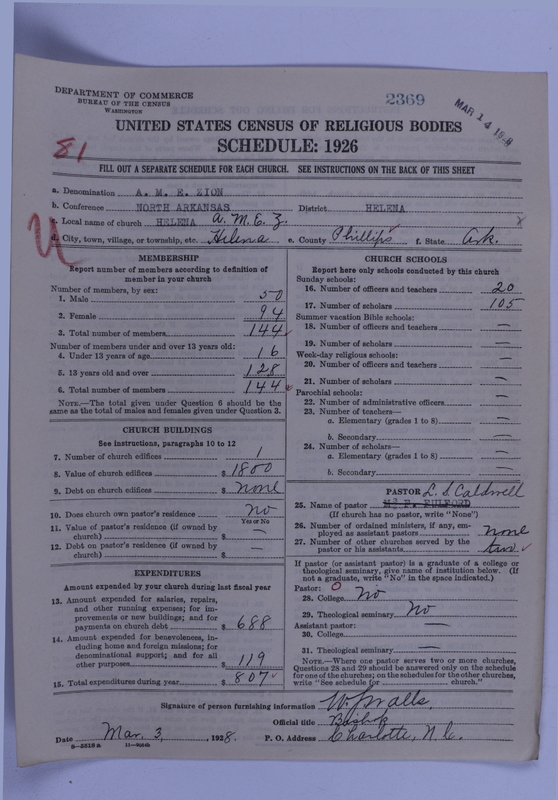 DEPARTMENT OF COMMERCE
BUREAU OF THE CENSUS
WASHINGTON
2369
MAR 14 1928
UNITED STATES CENSUS OF RELIGIOUS BODIES
SCHEDULE: 1926
81
FILL OUT A SEPARATE SCHEDULE FOR EACH CHURCH. SEE INSTRUCTIONS ON THE BACK OF THIS SHEET
a. Denomination A. M. E. ZION
b. Conference NORTH ARKANSAS District HELENA
c. Local name of church HELENA A. M. E. Z.
d. City, town, village, or township, etc. Helena e. County Phillips f. State Ark.
MEMBERSHIP
Report number of members according to definition of
member in your church
Number of members, by sex:
1. Male 50
2. Female 94
3. Total number of members 144
Number of members under and over 13 years old:
4. Under 13 years of age 16
5. 13 years old and over 128
6. Total number of members 144
NOTE.—The total given under Question 6 should be the
same as the total of males and females given under Question 3.
CHURCH BUILDINGS
See instructions, paragraphs 10 to 12
7. Number of church edifices 1
8. Value of church edifices $ 1800
9. Debt on church edifices $ none
10. Does church own pastor's residence no
Yes or No
11. Value of pastor's residence (if owned by
church) $ —
12. Debt on pastor's residence (if owned by
church) $ —
EXPENDITURES
Amount expended by your church during last fiscal year
13. Amount expended for salaries, repairs,
and other running expenses; for im-
provements or new buildings; and for
payments on church debt $ 688
14. Amount expended for benevolences, in-
cluding home and foreign missions; for
denominational support; and for all
other purposes $ 119
15. Total expenditures during year $ 807
CHURCH SCHOOLS
Report here only schools conducted by this church
Sunday schools:
16. Number of officers and teachers 20
17. Number of scholars 105
Summer vacation Bible schools:
18. Number of officers and teachers —
19. Number of scholars —
Week-day religious schools:
20. Number of officers and teachers —
21. Number of scholars —
Parochial schools:
22. Number of administrative officers —
23. Number of teachers—
a. Elementary (grades 1 to 8) —
b. Secondary —
24. Number of scholars—
a. Elementary (grades 1 to 8) —
b. Secondary —
PASTOR L. S. Caldwell
25. Name of pastor FULFORD
(If church has no pastor, write "None")
26. Number of ordained ministers, if any, em-
ployed as assistant pastors none
27. Number of other churches served by the
pastor or his assistants two
If pastor (or assistant pastor) is a graduate of a college or
theological seminary, give name of institution below. (If
not a graduate, write "No" in the space indicated.)
Pastor:
28. College No
29. Theological seminary No
Assistant pastor: —
30. College
31. Theological seminary —
NOTE.—Where one pastor serves two or more churches,
Questions 28 and 29 should be answered only on the schedule
for one of the churches; on the schedules for the other churches,
write "See schedule for church."
Signature of person furnishing information W. J. Walls,
Official title Bishop
Date Mar. 3, , 1928. P. O. Address Charlotte, N. C.